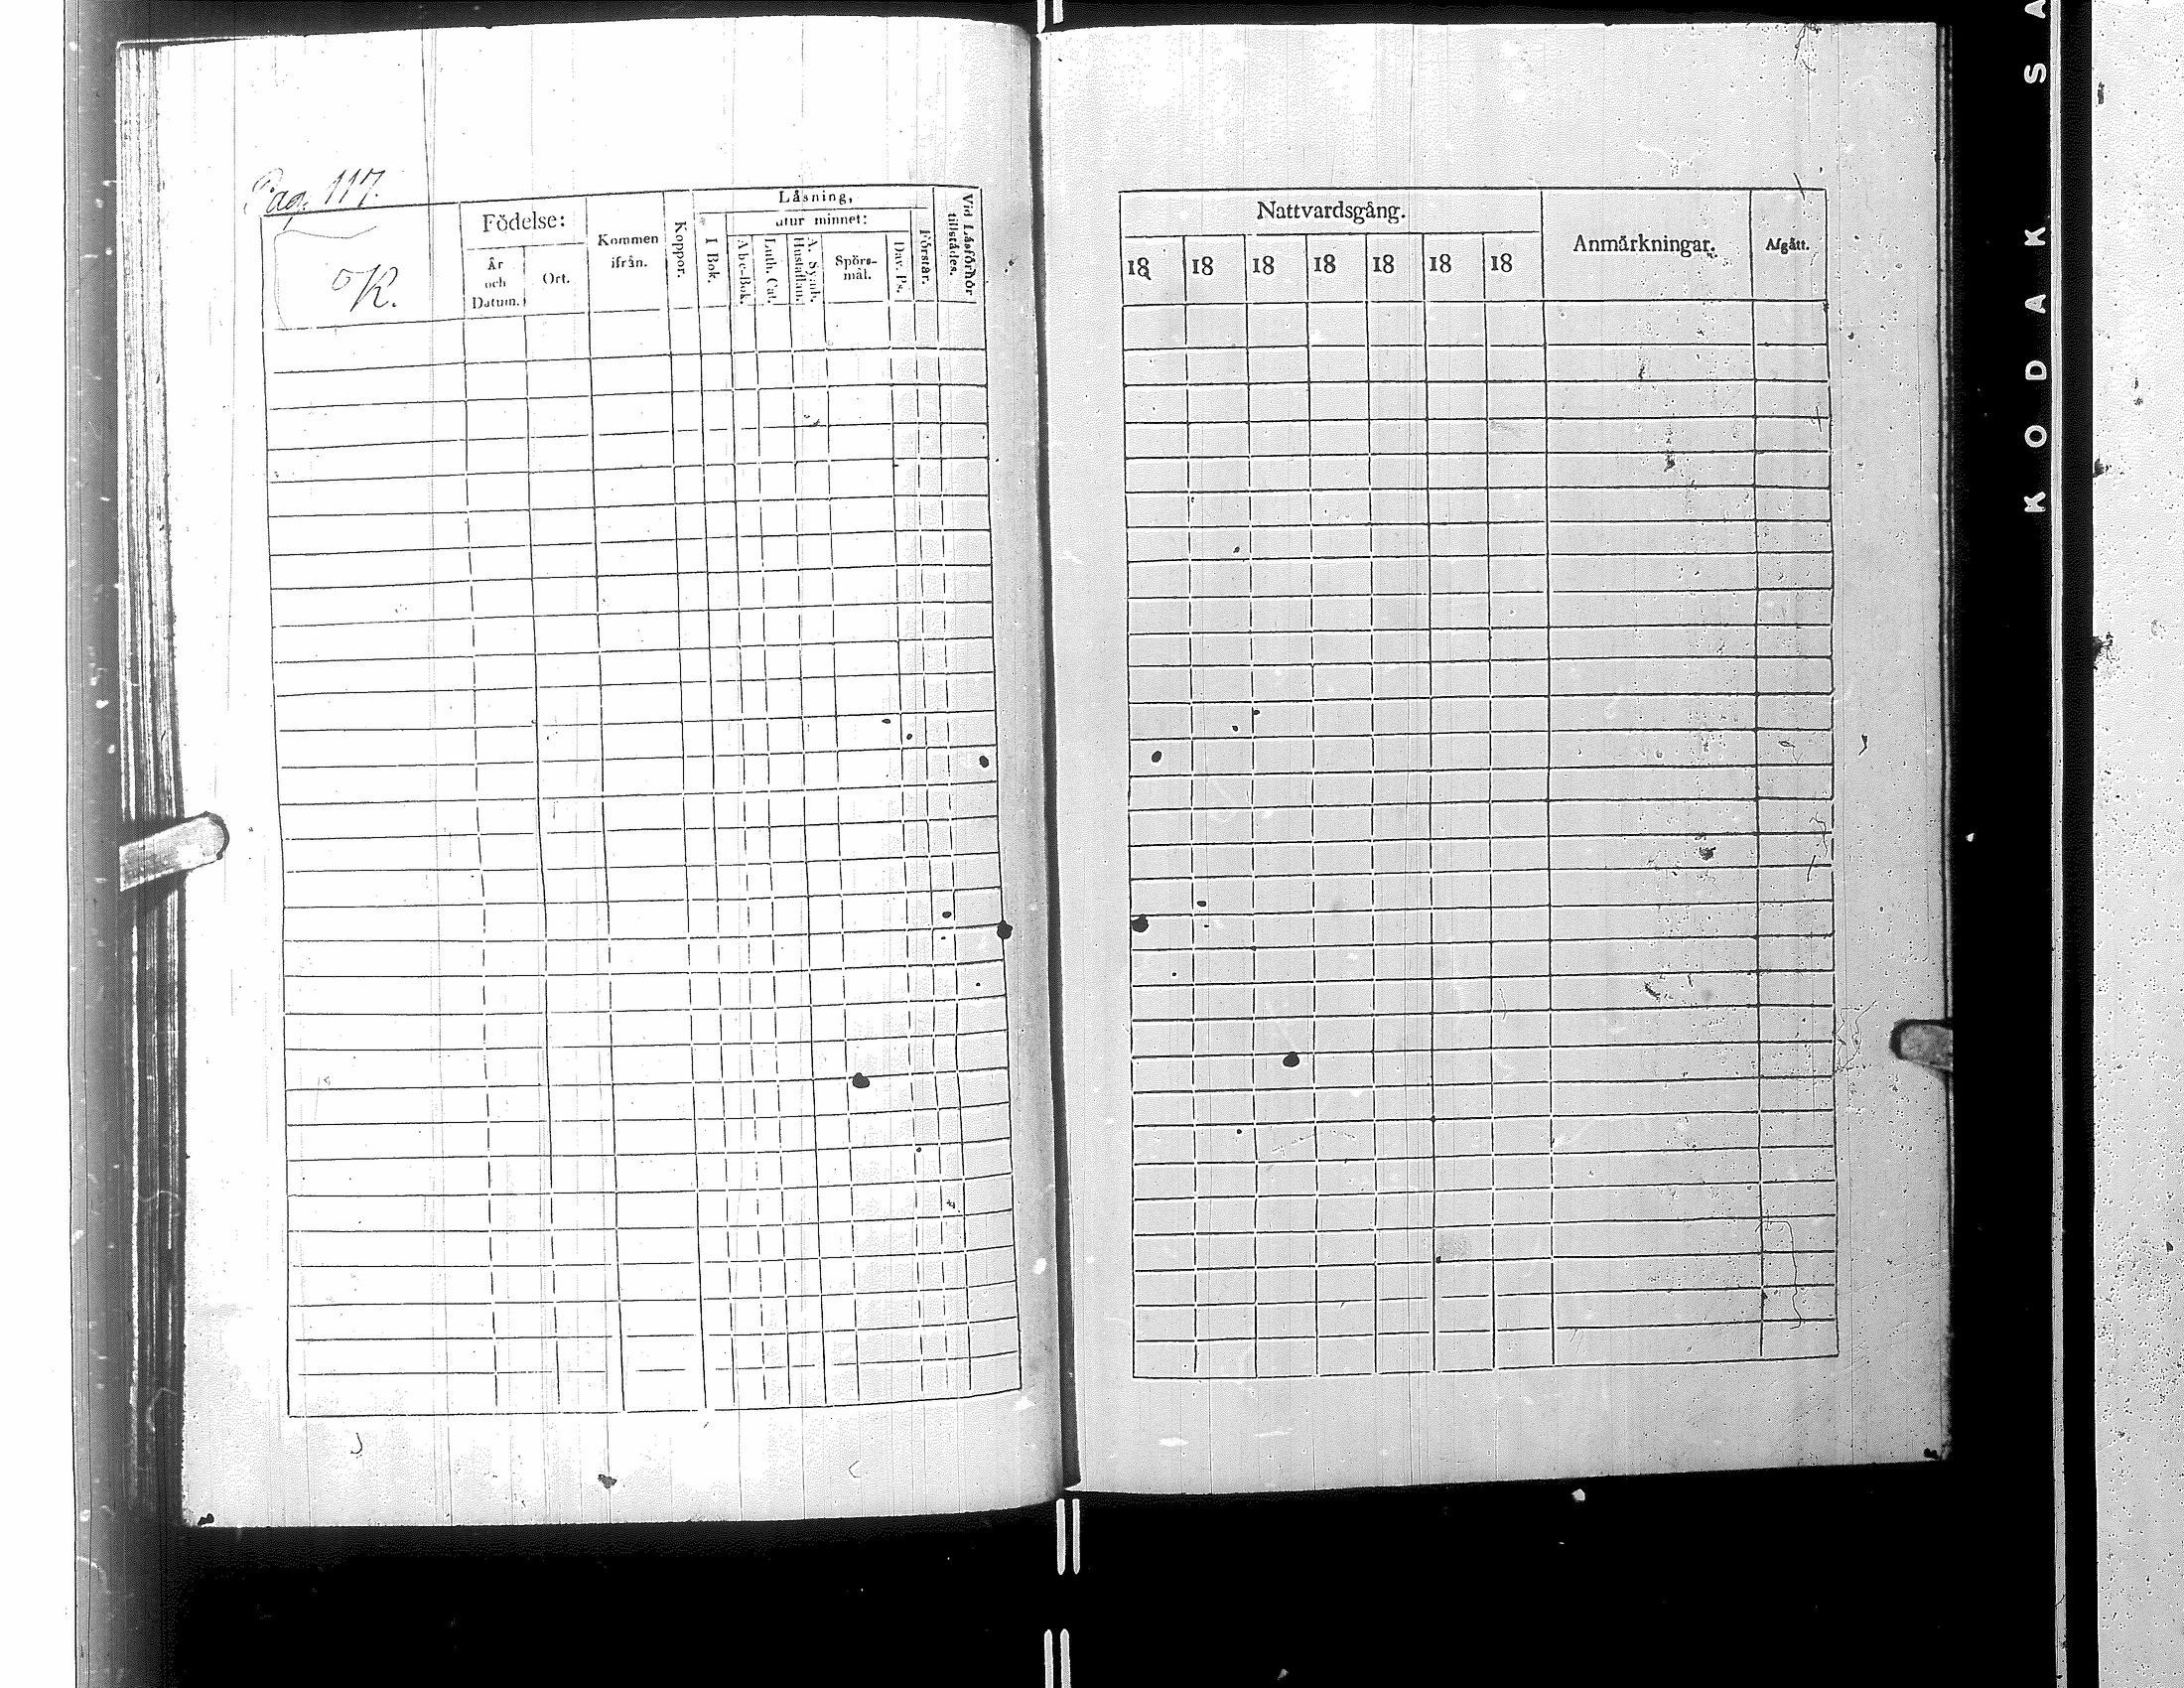 Pag. 117.
K.
Födelse:
År
och
Datum.
Ort.
Kommen
ifrån.
Koppor.
Låsning,
I Bok.
utur minnet:
Abc-Bok.
Luth. Cat.
A. Symb.
Hustaflan.
Spörs-
mål.
Dav. Ps.
Förstår.
Vid Låsförhör
tillstådes.
Nattvardsgång.
18 18 18 18 18 18 18
Anmårkningar.
Afgått.
KODAK SA